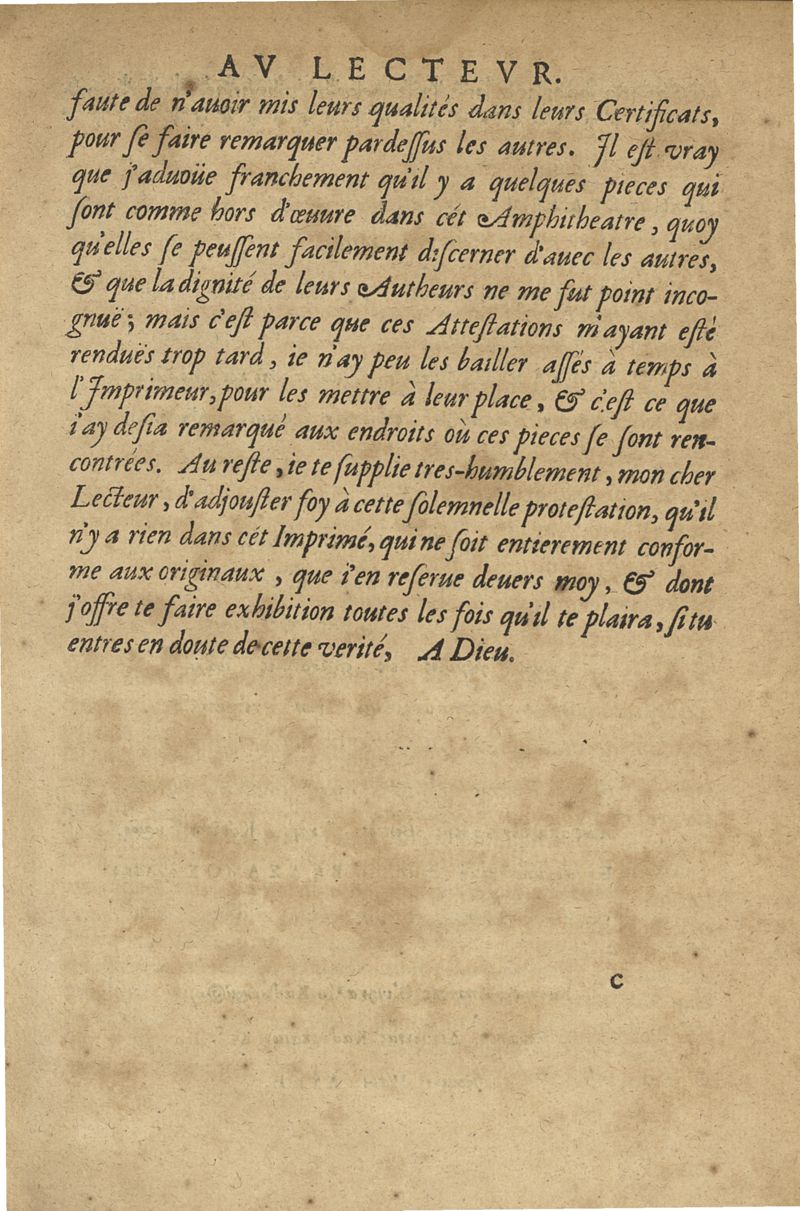 AV LECTEVR.
faute de n'auoir mis leurs qualités dans leurs Certificats,
pour ſe faire remarquer pardeſſus les autres. Il eſt vray
que j'aduoüe franchement qu'il y a quelques pieces qui
ſont comme hors d'œuure dans cét Amphitheatre, quoy
qu'elles ſe peuſſent facilement diſcerner d'auec les autres,
& que la dignité de leurs Autheurs ne me fut point inco-
gnuë; mais c'eſt parce que ces Atteſtations m'ayant eſté
renduës trop tard, ie n'ay peu les bailler aſſés à temps à
l'Imprimeur, pour les mettre à leur place, & c'eſt ce que
i'ay deſia remarqué aux endroits où ces pieces ſe ſont ren-
contrées. Au reſte, ie te ſupplie tres-humblement, mon cher
Lecteur, d'adjouſter foy à cette ſolemnelle proteſtation, qu'il
n'y a rien dans cét Imprimé, qui ne ſoit entierement confor-
me aux originaux, que i'en reſerue deuers moy, & dont
j'offre te faire exhibition toutes les fois qu'il te plaira, ſi tu
entres en doute de cette verité, A Dieu.
C